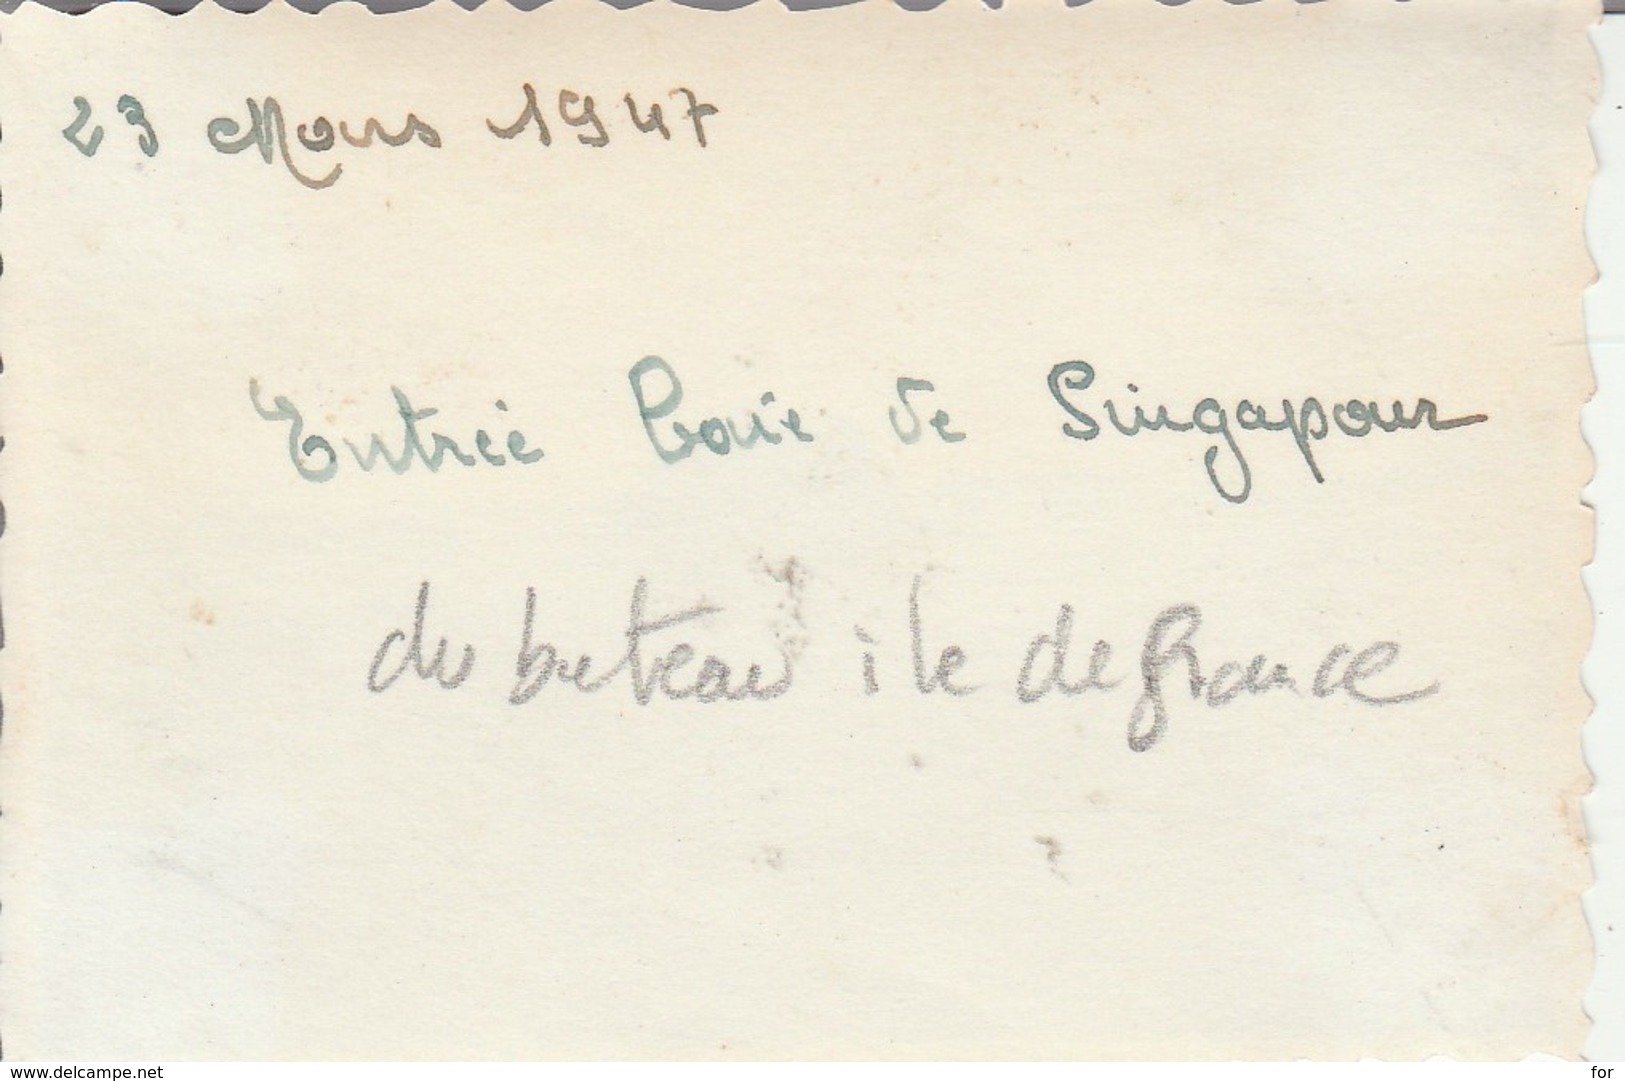 23 Mars 1947
Entrée Baie de Singapour
du bateau ile de france
www.delcampe.net
for